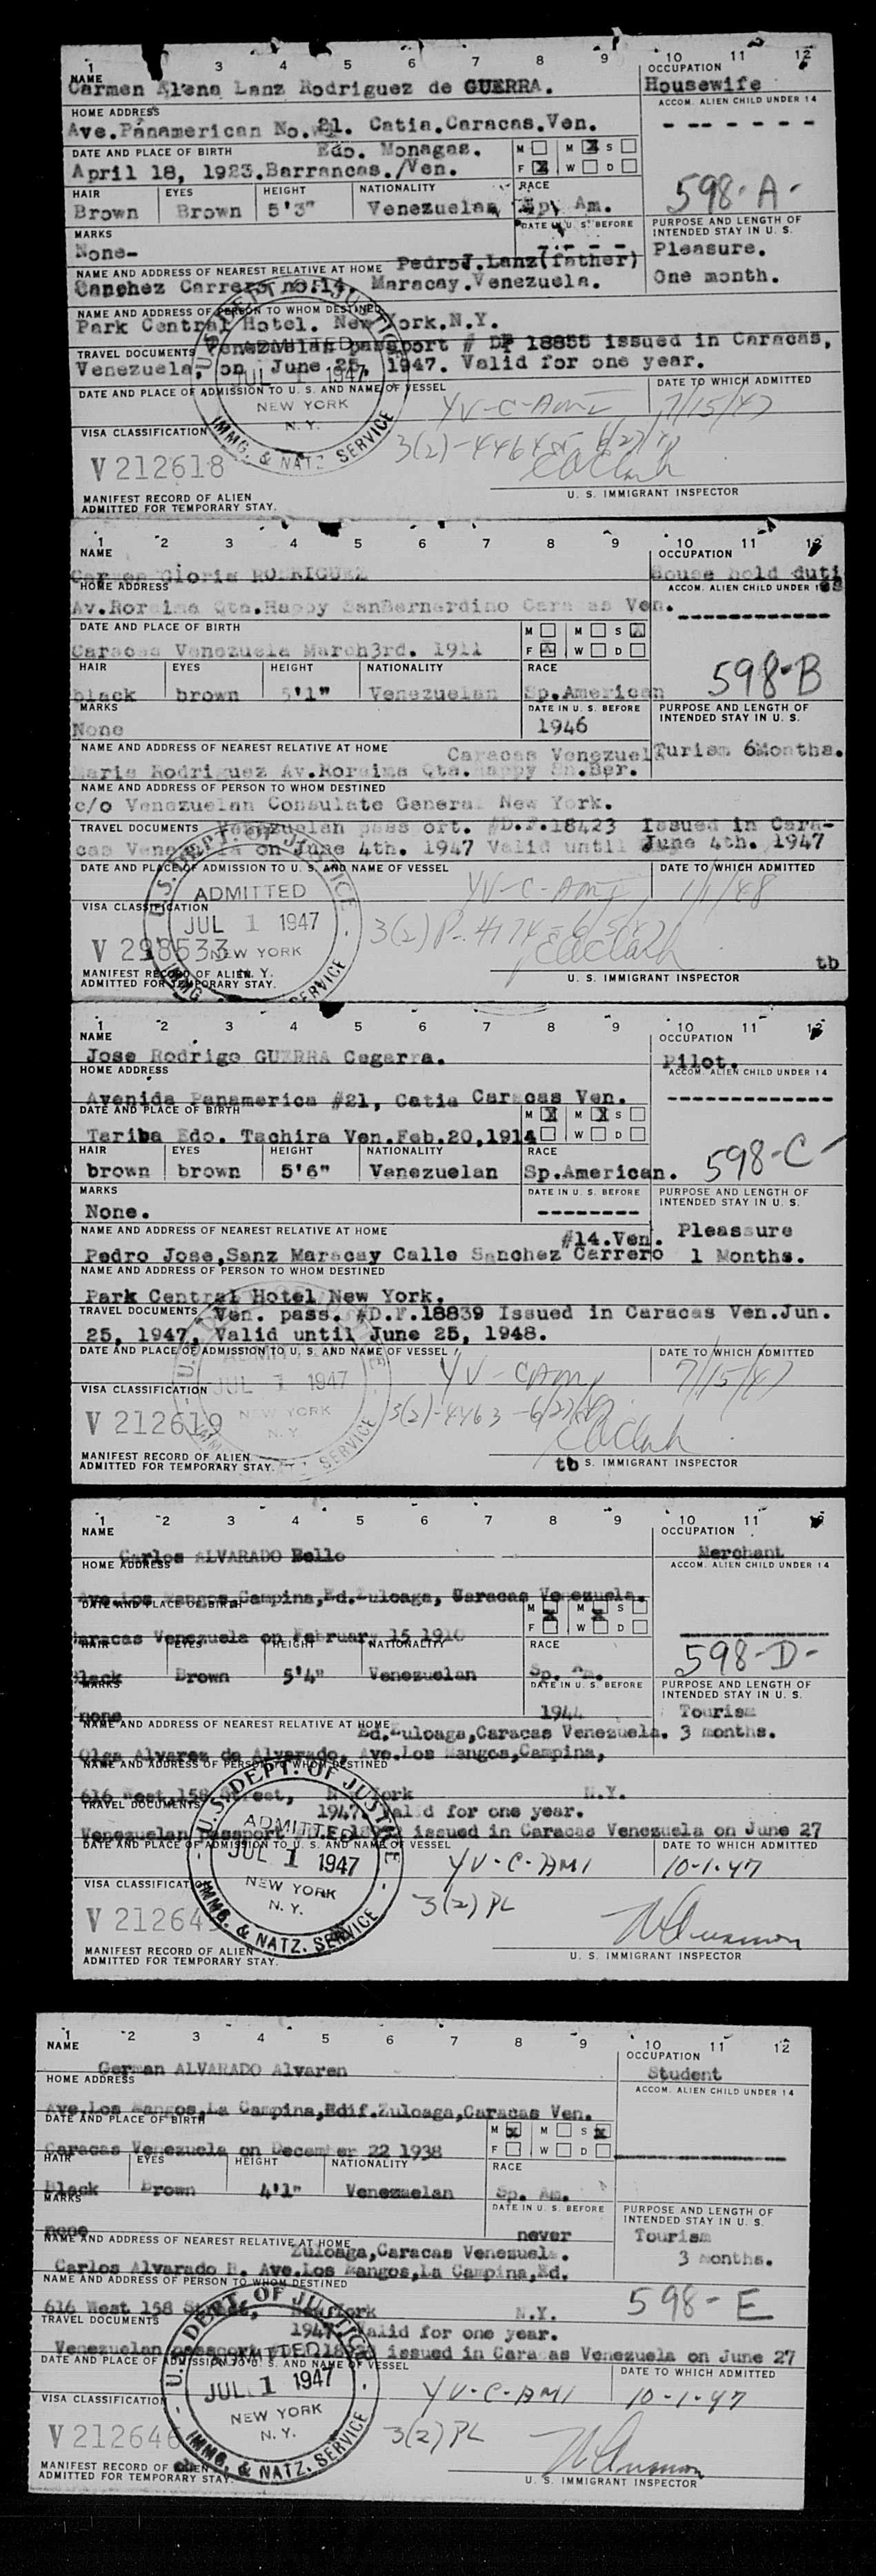 1 3 4 5 6 7 8 9 10 11 12
NAME OCCUPATION
Carmen Elena Lanz Rodriguez de GUERRA. Housewife
HOME ADDRESS ACCOM. ALIEN CHILD UNDER 14
Ave.Panamerican No. 21. Catia.Caracas.Ven. - - - - - -
DATE AND PLACE OF BIRTH Edo. Monagas. M M X S
April 18, 1923.Barrancas./Ven. F X W D
HAIR EYES HEIGHT NATIONALITY RACE
Brown Brown 5'3" Venezuelan Sp. Am. 598-A-
MARKS DATE IN U. S. BEFORE PURPOSE AND LENGTH OF INTENDED STAY IN U. S.
None- - - - - Pleasure.
NAME AND ADDRESS OF NEAREST RELATIVE AT HOME PedroJ.Lanz(father) One month.
Sanchez Carrero no.14. Maracay.Venezuela.
NAME AND ADDRESS OF PERSON TO WHOM DESTINED
Park Central Hotel. New York.N.Y.
TRAVEL DOCUMENTS Venezuelan passport # DP 18855 issued in Caracas,
Venezuela, on June 25, 1947. Valid for one year.
DATE AND PLACE OF ADMISSION TO U. S. AND NAME OF VESSEL DATE TO WHICH ADMITTED
U.S. DEPT. OF JUSTICE ADMITTED JUL 1 1947 NEW YORK N. Y. IMMG. & NATZ. SERVICE
YV-C-AMI 7/15/47
VISA CLASSIFICATION 3(2)-4464
V 212618 EAClark
MANIFEST RECORD OF ALIEN U. S. IMMIGRANT INSPECTOR
ADMITTED FOR TEMPORARY STAY.
1 2 3 4 5 6 7 8 9 10 11 12
NAME OCCUPATION
Carmen Gloria RODRIGUEZ House hold duties
HOME ADDRESS ACCOM. ALIEN CHILD UNDER 14
Av.Roraima Qta.Happy SanBernardino Caracas Ven. -------------
DATE AND PLACE OF BIRTH M M S X
Caracas Venezuela March3rd. 1911 F X W D
HAIR EYES HEIGHT NATIONALITY RACE
black brown 5'1" Venezuelan Sp.American 598-B
MARKS DATE IN U. S. BEFORE PURPOSE AND LENGTH OF INTENDED STAY IN U. S.
None 1946
NAME AND ADDRESS OF NEAREST RELATIVE AT HOME Caracas Venezuel Turism 6Months.
Maria Rodriguez Av.Roraima Qta.Happy Sn.Ber.
NAME AND ADDRESS OF PERSON TO WHOM DESTINED
c/o Venezuelan Consulate General New York.
TRAVEL DOCUMENTS Venezuelan pass ort. #D.P.18423 Issued in Cara-
cas Venezuela on June 4th. 1947 Valid until June 4th. 1947
DATE AND PLACE OF ADMISSION TO U. S. AND NAME OF VESSEL DATE TO WHICH ADMITTED
U.S. DEPT. OF JUSTICE ADMITTED JUL 1 1947 NEW YORK N. Y. IMMG. SERVICE
YV-C-AMI 1/1/48
VISA CLASSIFICATION 3(2)P-4174
V 298533 EAClark tb
MANIFEST RECORD OF ALIEN U. S. IMMIGRANT INSPECTOR
ADMITTED FOR TEMPORARY STAY.
1 2 3 4 5 6 7 8 9 10 11 12
NAME OCCUPATION
Jose Rodrigo GUERRA Cegarra. Pilot.
HOME ADDRESS ACCOM. ALIEN CHILD UNDER 14
Avenida Panamerica #21, Catia Caracas Ven. -------------
DATE AND PLACE OF BIRTH M X M X S
Tariba Edo. Tachira Ven.Feb.20,1914 W D
HAIR EYES HEIGHT NATIONALITY RACE
brown brown 5'6" Venezuelan Sp.American. 598-C-
MARKS DATE IN U. S. BEFORE PURPOSE AND LENGTH OF INTENDED STAY IN U. S.
None. --------
NAME AND ADDRESS OF NEAREST RELATIVE AT HOME #14.Ven. Pleassure
Pedro Jose,Sanz Maracay Calle Sanchez Carrero 1 Months.
NAME AND ADDRESS OF PERSON TO WHOM DESTINED
Park Central Hotel New York.
TRAVEL DOCUMENTS Ven. pass. #D.P.18839 Issued in Caracas Ven.Jun.
25, 1947, Valid until June 25, 1948.
DATE AND PLACE OF ADMISSION TO U. S. AND NAME OF VESSEL DATE TO WHICH ADMITTED
ADMITTED JUL 1 1947 NEW YORK N. Y. SERVICE
YV-CAMI 7/15/47
VISA CLASSIFICATION 3(2)-4463-6/27/47
V 212619 EAClark
MANIFEST RECORD OF ALIEN tb S. IMMIGRANT INSPECTOR
ADMITTED FOR TEMPORARY STAY.
1 2 3 4 5 6 7 8 9 10 11 12
NAME OCCUPATION
Carlos ALVARADO Bello Merchant
HOME ADDRESS ACCOM. ALIEN CHILD UNDER 14
Ave.Los Mangos,Campina,Ed.Zuloaga, Caracas Venezuela.
DATE AND PLACE OF BIRTH M X M X S
Caracas Venezuela on February 15 1910 F W D
HAIR EYES HEIGHT NATIONALITY RACE 598-D-
Black Brown 5'4" Venezuelan Sp. Am.
MARKS DATE IN U. S. BEFORE PURPOSE AND LENGTH OF INTENDED STAY IN U. S.
none 1944 Tourism
NAME AND ADDRESS OF NEAREST RELATIVE AT HOME Ed.Zuloaga,Caracas Venezuela. 3 months.
Olga Alvarez de Alvarado, Ave.Los Mangos,Campina,
NAME AND ADDRESS OF PERSON TO WHOM DESTINED
616 West 158 Street, New York N.Y.
TRAVEL DOCUMENTS 1947. Valid for one year.
Venezuelan passport issued in Caracas Venezuela on June 27
DATE AND PLACE OF ADMISSION TO U. S. AND NAME OF VESSEL DATE TO WHICH ADMITTED
U.S. DEPT. OF JUSTICE ADMITTED JUL 1 1947 NEW YORK N. Y. IMMG. & NATZ. SERVICE
YV-C-AMI 10-1-47
VISA CLASSIFICATION 3(2) PL
V 21264
MANIFEST RECORD OF ALIEN U. S. IMMIGRANT INSPECTOR
ADMITTED FOR TEMPORARY STAY.
1 2 3 4 5 6 7 8 9 10 11 12
NAME OCCUPATION
German ALVARADO Alvaren Student
HOME ADDRESS ACCOM. ALIEN CHILD UNDER 14
Ave.Los Mangos,La Campina,Edif.Zuloaga,Caracas Ven.
DATE AND PLACE OF BIRTH M X M S X
Caracas Venezuela on December 22 1938 F W D
HAIR EYES HEIGHT NATIONALITY RACE
Black Brown 4'1" Venezuelan Sp. Am.
MARKS DATE IN U. S. BEFORE PURPOSE AND LENGTH OF INTENDED STAY IN U. S.
none never Tourism
NAME AND ADDRESS OF NEAREST RELATIVE AT HOME Zuloaga,Caracas Venezuela. 3 months.
Carlos Alvarado B. Ave.Los Mangos,La Campina,Ed.
NAME AND ADDRESS OF PERSON TO WHOM DESTINED
616 West 158 Street, New York N.Y. 598-E
TRAVEL DOCUMENTS 1947. Valid for one year.
Venezuelan passport issued in Caracas Venezuela on June 27
DATE AND PLACE OF ADMISSION TO U. S. AND NAME OF VESSEL DATE TO WHICH ADMITTED
U.S. DEPT. OF JUSTICE ADMITTED JUL 1 1947 NEW YORK N. Y. IMMG. & NATZ. SERVICE
YV-C-AMI 10-1-47
VISA CLASSIFICATION 3(2) PL
V 212646
MANIFEST RECORD OF ALIEN U. S. IMMIGRANT INSPECTOR
ADMITTED FOR TEMPORARY STAY.